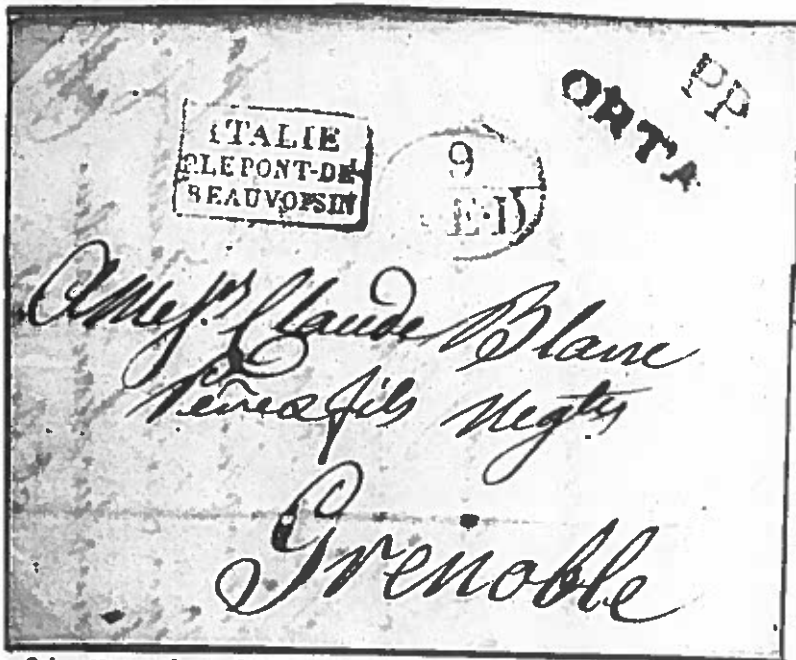 PP
ORTA
ITALIE
P.LE PONT-DE-
BEAUVOISIN
9
E.D
A Mess.rs Claude Blanc
Père & fils Negts
Grenoble